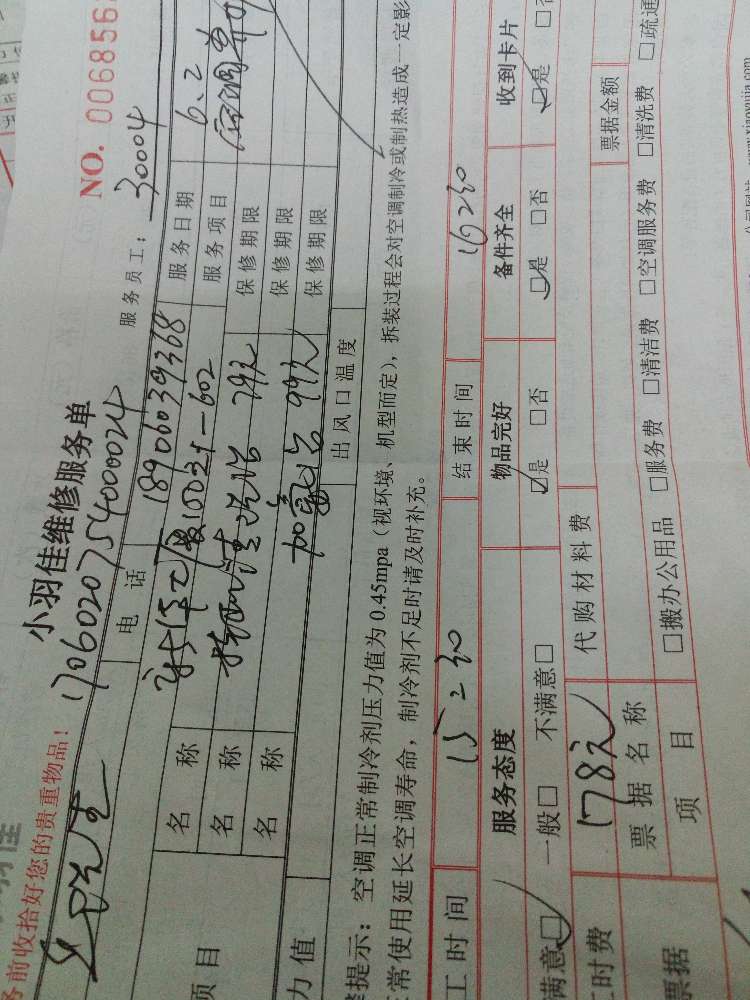 务前收拾好您的贵重物品！
小羽佳维修服务单
NO. 006856
1706020754000024
服务员工： 30004
电 话 18906039368
服务日期 6.2
名 称
服务项目
名 称 清洗 79元
保修期限
名 称
保修期限
项目
加氟 99元
保修期限
力值
出风口温度
提示： 空调正常制冷剂压力值为 0.45mpa（视环境、机型而定），拆装过程会对空调制冷或制热造成一定影
常使用延长空调寿命，制冷剂不足时请及时补充。
工时间 15:30 结束时间 16:30
服务态度 物品完好 备件齐全 收到卡片
满意□ 一般□ 不满意□ □是 □否 □是 □否 □是
时费 178元 代购材料费
票据 票据名称 票据金额
项 目 □搬办公用品 □服务费 □清洁费 □空调服务费 □清洗费 □疏通